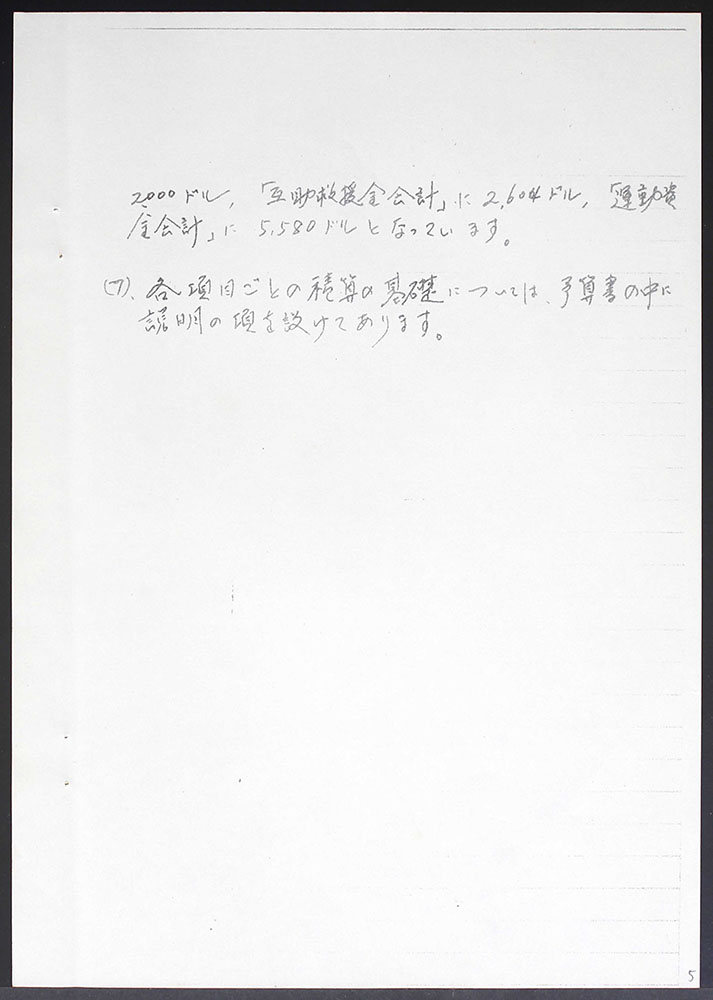 2000ドル、「互助救援金会計」に2,604ドル、「運動資
金会計」に5,580ドルとなっています。
(7)、各項目ごとの積算の基礎については、予算書の中に
説明の項を設けてあります。
5